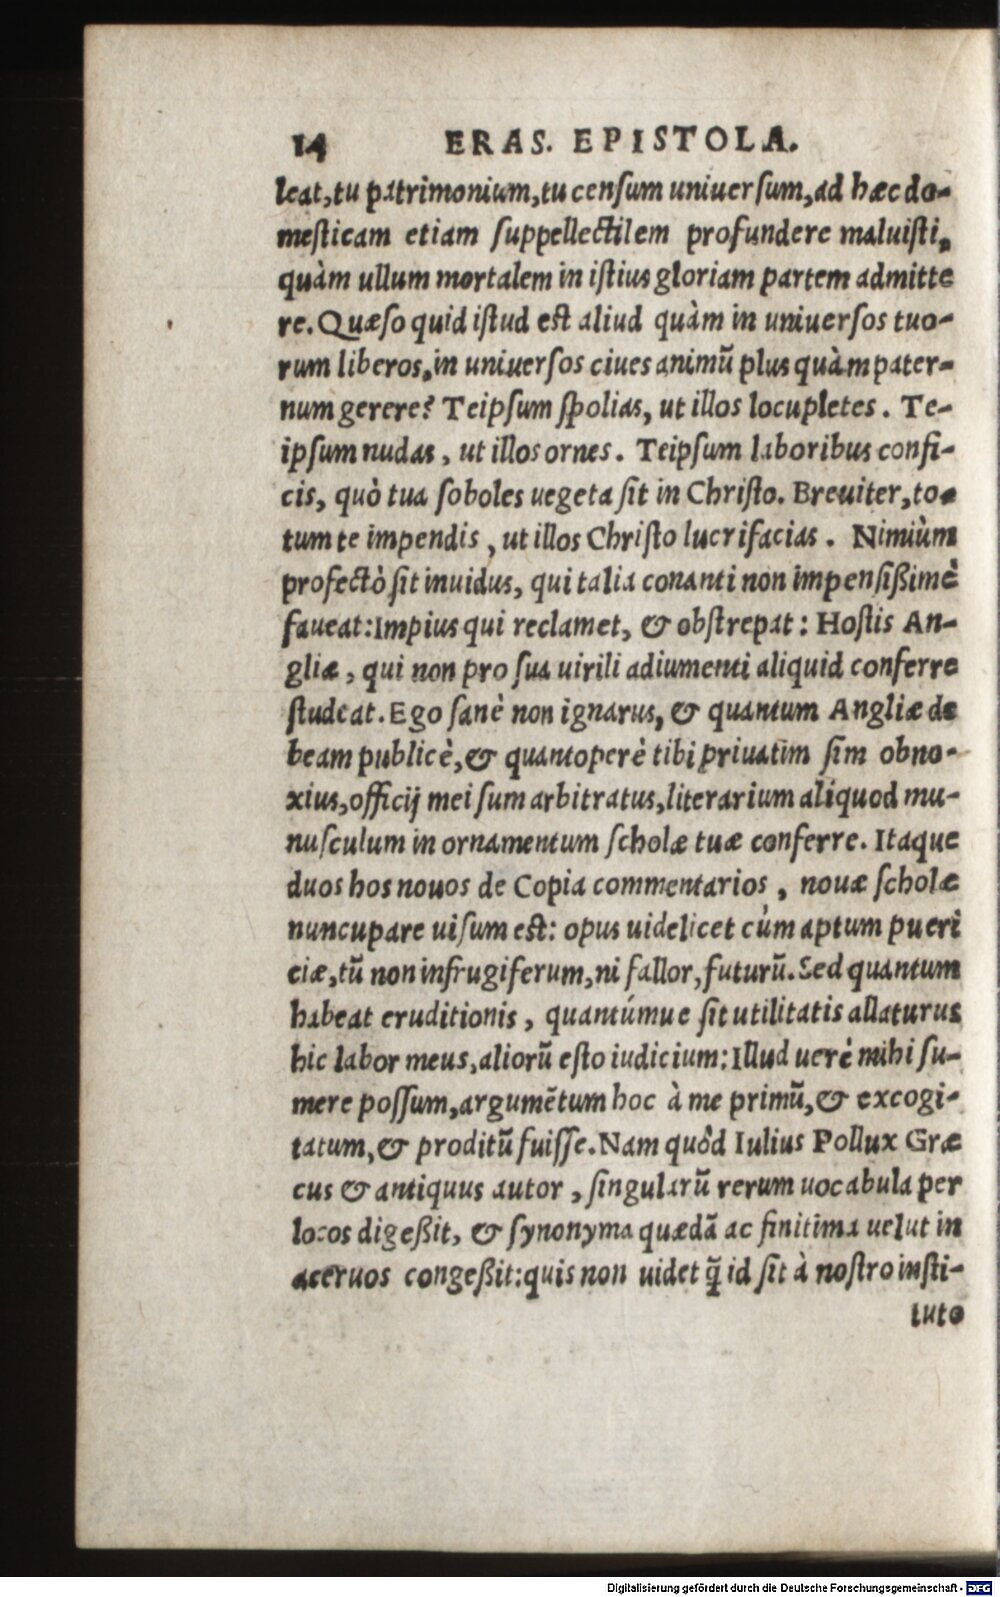 14 ERAS. EPISTOLA.
leat, tu patrimonium, tu censum uniuersum, ad hæc do-
mesticam etiam suppellectilem profundere maluisti,
quàm ullum mortalem in istius gloriam partem admitte
re. Quæso quid istud est aliud quàm in uniuersos tuo-
rum liberos, in uniuersos ciues animũ plus quàm pater-
num gerere? Teipsum spolias, ut illos locupletes. Te-
ipsum nudas, ut illos ornes. Teipsum laboribus confi-
cis, quò tua soboles uegeta sit in Christo. Breuiter, to-
tum te impendis, ut illos Christo lucrifacias. Nimiùm
profectò sit inuidus, qui talia conanti non impensißimè
faueat: Impius qui reclamet, & obstrepat: Hostis An-
gliæ, qui non pro sua uirili adiumenti aliquid conferre
studeat. Ego sanè non ignarus, & quantum Angliæ de
beam publicè, & quantoperè tibi priuatim sim obno-
xius, officij mei sum arbitratus, literarium aliquod mu-
nusculum in ornamentum scholæ tuæ conferre. Itaque
duos hos nouos de Copia commentarios, nouæ scholæ
nuncupare uisum est: opus uidelicet cùm aptum pueri
ciæ, tũ non infrugiferum, ni fallor, futurũ. Sed quantum
habeat eruditionis, quantúmue sit utilitatis allaturus
hic labor meus, aliorũ esto iudicium: Illud uerè mihi su-
mere possum, argumẽtum hoc à me primũ, & excogi-
tatum, & proditũ fuisse. Nam quòd Iulius Pollux Græ
cus & antiquus autor, singularũ rerum uocabula per
locos digeßit, & synonyma quædã ac finitima uelut in
aceruos congeßit: quis non uidet q̃ id sit à nostro insti-
tuto
Digitalisierung gefördert durch die Deutsche Forschungsgemeinschaft - DFG